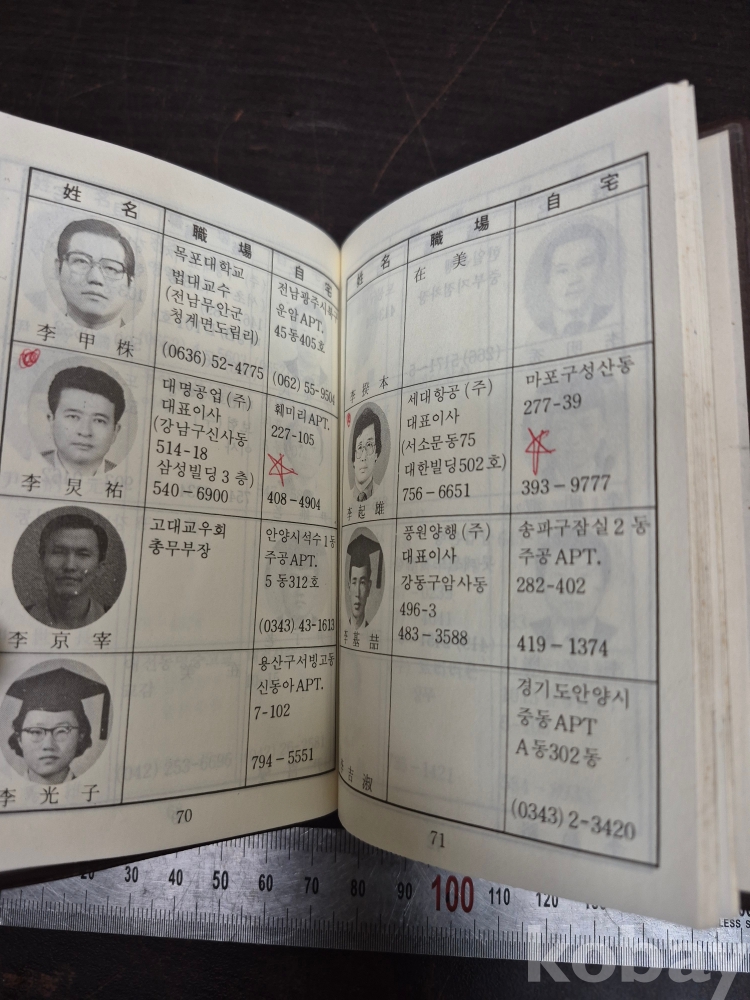 姓 名
職 場
自 宅
李 甲 株
목포대학교
법대교수
(전남무안군
청계면도림리)
(0636) 52-4775
전남광주시북구
운암APT.
45동405호
(062) 55-9504
李 炅 祐
대명공업 (주)
대표이사
(강남구신사동
514-18
삼성빌딩 3 층)
540-6900
훼미리APT.
227-105
408-4904
李 京 宰
고대교우회
총무부장
안양시석수1동
주공APT.
5 동312호
(0343) 43-1613
李 光 子
용산구서빙고동
신동아APT.
7-102
794-5551
70
姓 名
職 場
自 宅
李 揆 本
在 美
李 起 雎
세대항공 (주)
대표이사
(서소문동75
대한빌딩502호)
756-6651
마포구성산동
277-39
393-9777
李 基 喆
풍원양행 (주)
대표이사
강동구암사동
496-3
483-3588
송파구잠실 2 동
주공APT.
282-402
419-1374
李 吉 淑
경기도안양시
중동APT
A동302동
(0343) 2-3420
71
20 30 40 50 60 70 80 90 100 110 120
kobay